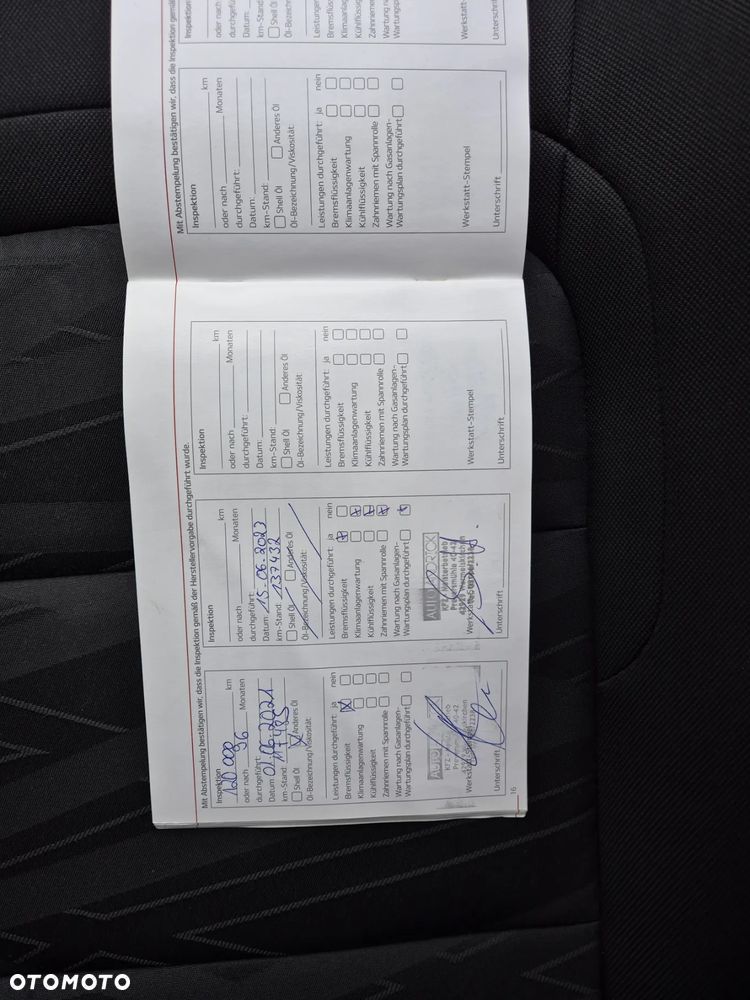 Mit Abstempelung bestätigen wir, dass die Inspektion gemäß der Herstellervorgabe durchgeführt wurde.
Inspektion
120 000 km
oder nach 96 Monaten
durchgeführt:
Datum: 01.06.2021
km-Stand:
Shell Öl X Anderes Öl
Öl-Bezeichnung/Viskosität:
Leistungen durchgeführt: ja nein
Bremsflüssigkeit X
Klimaanlagenwartung
Kühlflüssigkeit
Zahnriemen mit Spannrolle
Wartung nach Gasanlagen-
Wartungsplan durchgeführt
AUTO
KFZ
40-42
Werkstatt-Stempel
Unterschrift
16
Inspektion
km
oder nach Monaten
durchgeführt:
Datum: 15.06.2023
km-Stand: 137432
Shell Öl Anderes Öl
Öl-Bezeichnung/Viskosität:
Leistungen durchgeführt: ja nein
Bremsflüssigkeit X
Klimaanlagenwartung X
Kühlflüssigkeit X
Zahnriemen mit Spannrolle X
Wartung nach Gasanlagen-
Wartungsplan durchgeführt X
AUTO
KFZ Meisterbetrieb
40-42
42929 Wermelskirchen
Unterschrift
Inspektion
km
oder nach Monaten
durchgeführt:
Datum:
km-Stand:
Shell Öl Anderes Öl
Öl-Bezeichnung/Viskosität:
Leistungen durchgeführt: ja nein
Bremsflüssigkeit
Klimaanlagenwartung
Kühlflüssigkeit
Zahnriemen mit Spannrolle
Wartung nach Gasanlagen-
Wartungsplan durchgeführt
Werkstatt-Stempel
Unterschrift
Mit Abstempelung bestätigen wir, dass die Inspektion gemäß
Inspektion
km
oder nach Monaten
durchgeführt:
Datum:
km-Stand:
Shell Öl Anderes Öl
Öl-Bezeichnung/Viskosität:
Leistungen durchgeführt: ja nein
Bremsflüssigkeit
Klimaanlagenwartung
Kühlflüssigkeit
Zahnriemen mit Spannrolle
Wartung nach Gasanlagen-
Wartungsplan durchgeführt
Werkstatt-Stempel
Unterschrift
Inspektion
oder nach
durchgefü
Datum:
km-Stand
Shell Öl
Öl-Bezeich
Leistungen
Bremsflüss
Klimaanla
Kühlflüssi
Zahnrieme
Wartung n
Wartungs
Werkstatt
Unterschrif
OTOMOTO